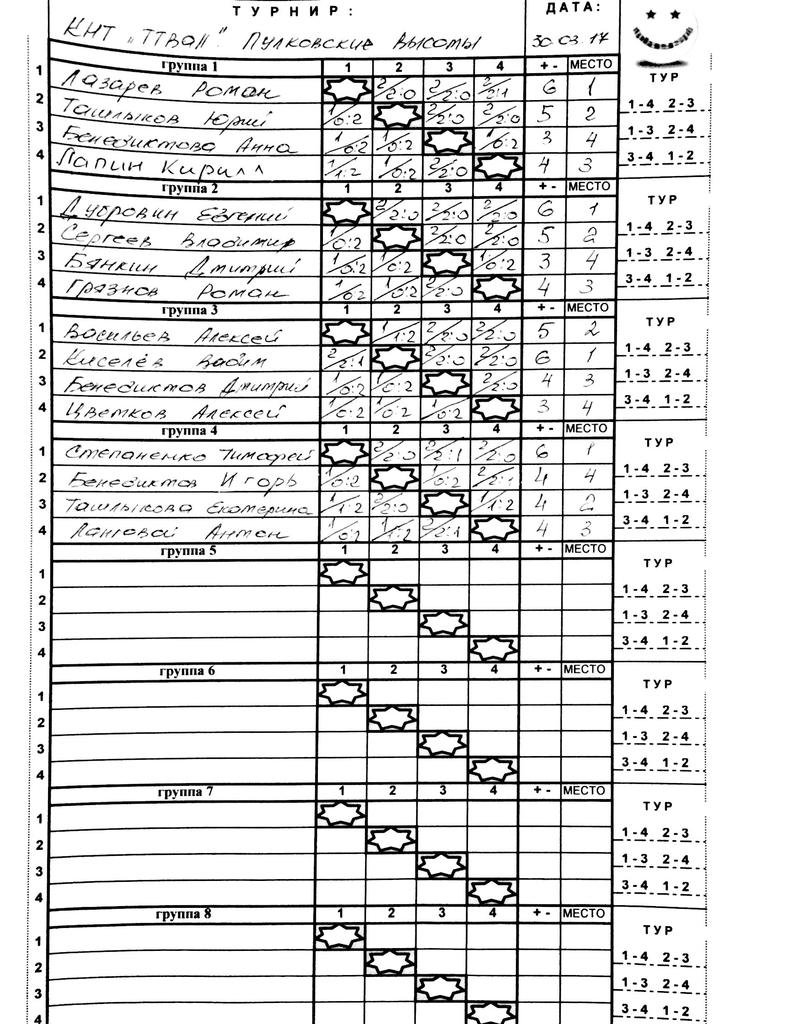 ТУРНИР: ДАТА:
КНТ „ТТВАП". Пулковские высоты 30.03.17
группа 1 1 2 3 4 + - МЕСТО ТУР
1 Лазарев Роман 2/2:0 2/2:0 2/2:1 6 1
2 Ташлыков Юрий 1/0:2 2/2:0 2/2:0 5 2 1-4 2-3
3 Бенедиктова Анна 1/0:2 1/0:2 1/0:2 3 4 1-3 2-4
4 Лапин Кирилл 1/1:2 1/0:2 2/2:0 4 3 3-4 1-2
группа 2 1 2 3 4 + - МЕСТО ТУР
1 Дубровин Евгений 2/2:0 2/2:0 2/2:0 6 1
2 Сергеев Владимир 1/0:2 2/2:0 2/2:0 5 2 1-4 2-3
3 Бянкин Дмитрий 1/0:2 1/0:2 1/0:2 3 4 1-3 2-4
4 Грязнов Роман 1/0:2 1/0:2 2/2:0 4 3 3-4 1-2
группа 3 1 2 3 4 + - МЕСТО ТУР
1 Васильев Алексей 1/1:2 2/2:0 2/2:0 5 2
2 Киселёв Вадим 2/2:1 2/2:0 2/2:0 6 1 1-4 2-3
3 Бенедиктов Дмитрий 1/0:2 1/0:2 2/2:0 4 3 1-3 2-4
4 Цветков Алексей 1/0:2 1/0:2 1/0:2 3 4 3-4 1-2
группа 4 1 2 3 4 + - МЕСТО ТУР
1 Степаненко Тимофей 2/2:0 2/2:1 2/2:0 6 1
2 Бенедиктов Игорь 1/0:2 1/0:2 2/2:1 4 4 1-4 2-3
3 Ташлыкова Екатерина 1/1:2 2/2:0 1/1:2 4 2 1-3 2-4
4 Ланговой Антон 1/0:2 1/1:2 2/2:1 4 3 3-4 1-2
группа 5 1 2 3 4 + - МЕСТО ТУР
1
2 1-4 2-3
3 1-3 2-4
4 3-4 1-2
группа 6 1 2 3 4 + - МЕСТО ТУР
1
2 1-4 2-3
3 1-3 2-4
4 3-4 1-2
группа 7 1 2 3 4 + - МЕСТО ТУР
1
2 1-4 2-3
3 1-3 2-4
4 3-4 1-2
группа 8 1 2 3 4 + - МЕСТО ТУР
1
2 1-4 2-3
3 1-3 2-4
4 3-4 1-2